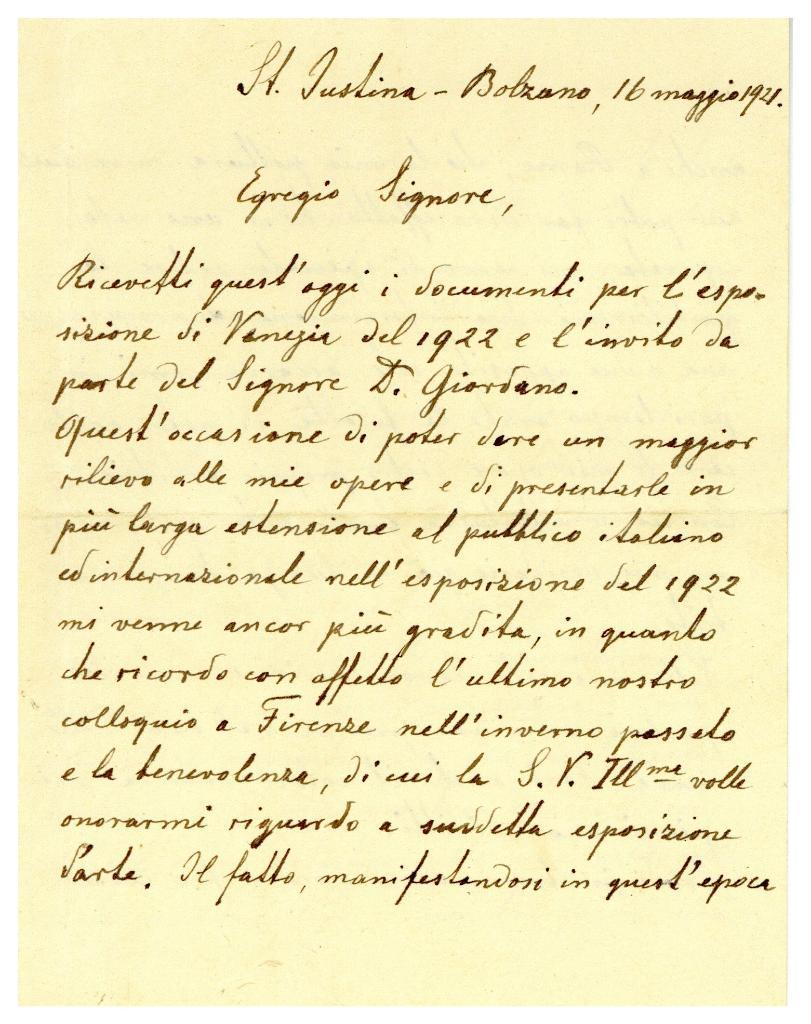 St. Justina - Bolzano, 16 maggio 1921.
Egregio Signore,
Ricevetti quest'oggi i documenti per l'espo-
sizione di Venezia del 1922 e l'invito da
parte del Signore D. Giordano.
Quest'occasione di poter dare un maggior
rilievo alle mie opere e di presentarle in
più larga estensione al pubblico italiano
ed internazionale nell'esposizione del 1922
mi venne ancor più gradita, in quanto
che ricordo con affetto l'ultimo nostro
colloquio a Firenze nell'inverno passato
e la benevolenza, di cui la S. V. Ill<sup>ma</sup> volle
onorarmi riguardo a suddetta esposizione
d'arte. Il fatto, manifestandosi in quest'epoca